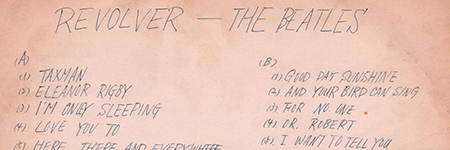 REVOLVER — THE BEATLES
(A)
(1) TAXMAN
(2) ELEANOR RIGBY
(3) I'M ONLY SLEEPING
(4) LOVE YOU TO
(5) HERE, THERE AND EVERYWHERE
(B)
(1) GOOD DAY SUNSHINE
(2) AND YOUR BIRD CAN SING
(3) FOR NO ONE
(4) DR. ROBERT
(5) I WANT TO TELL YOU